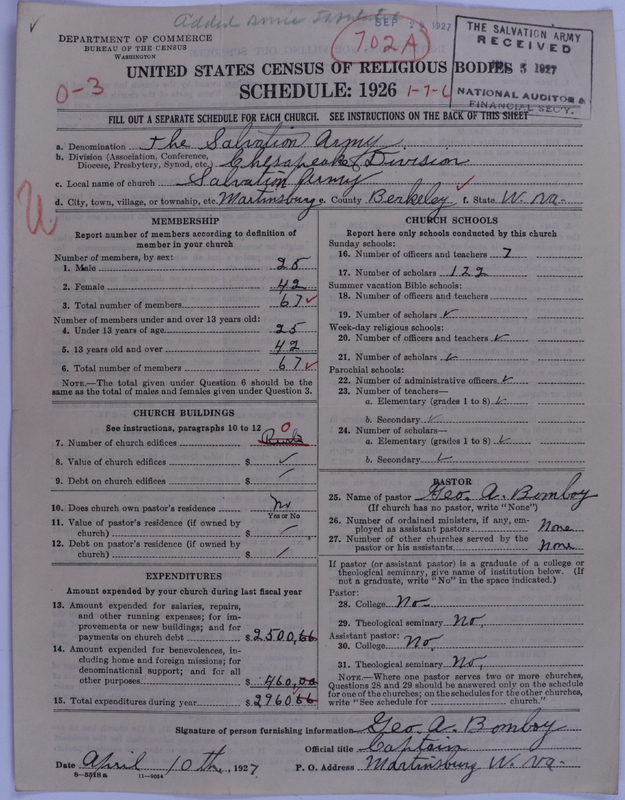 Added
SEP 1927
702A
THE SALVATION ARMY
RECEIVED
5 1927
NATIONAL AUDITOR &
FINANCIAL SEC'Y.
DEPARTMENT OF COMMERCE
BUREAU OF THE CENSUS
WASHINGTON
0-3
UNITED STATES CENSUS OF RELIGIOUS BODIES
SCHEDULE: 1926
FILL OUT A SEPARATE SCHEDULE FOR EACH CHURCH. SEE INSTRUCTIONS ON THE BACK OF THIS SHEET
a. Denomination The Salvation Army
b. Division (Association, Conference, Diocese, Presbytery, Synod, etc.) Chesapeake Division
c. Local name of church Salvation Army
d. City, town, village, or township, etc. Martinsburg e. County Berkeley f. State W. Va.
MEMBERSHIP
Report number of members according to definition of
member in your church
Number of members, by sex:
1. Male 25
2. Female 42
3. Total number of members 67
Number of members under and over 13 years old:
4. Under 13 years of age 25
5. 13 years old and over 42
6. Total number of members 67
NOTE.—The total given under Question 6 should be the
same as the total of males and females given under Question 3.
CHURCH BUILDINGS
See instructions, paragraphs 10 to 12
0
7. Number of church edifices
8. Value of church edifices $ ✓
9. Debt on church edifices $
10. Does church own pastor's residence No
Yes or No
11. Value of pastor's residence (if owned by
church) $
12. Debt on pastor's residence (if owned by
church) $
EXPENDITURES
Amount expended by your church during last fiscal year
13. Amount expended for salaries, repairs,
and other running expenses; for im-
provements or new buildings; and for
payments on church debt $ 2500.66
14. Amount expended for benevolences, in-
cluding home and foreign missions; for
denominational support; and for all
other purposes $ 460.00
15. Total expenditures during year $ 2960 66
CHURCH SCHOOLS
Report here only schools conducted by this church
Sunday schools:
16. Number of officers and teachers 7
17. Number of scholars 122
Summer vacation Bible schools:
18. Number of officers and teachers
19. Number of scholars ✓
Week-day religious schools:
20. Number of officers and teachers ✓
21. Number of scholars ✓
Parochial schools:
22. Number of administrative officers ✓
23. Number of teachers—
a. Elementary (grades 1 to 8) ✓
b. Secondary ✓
24. Number of scholars—
a. Elementary (grades 1 to 8) ✓
b. Secondary ✓
PASTOR
25. Name of pastor Geo. A. Bomboy
(If church has no pastor, write "None")
26. Number of ordained ministers, if any, em-
ployed as assistant pastors None
27. Number of other churches served by the
pastor or his assistants None
If pastor (or assistant pastor) is a graduate of a college or
theological seminary, give name of institution below. (If
not a graduate, write "No" in the space indicated.)
Pastor:
28. College No.
29. Theological seminary No.
Assistant pastor:
30. College No.
31. Theological seminary No.
NOTE.—Where one pastor serves two or more churches,
Questions 28 and 29 should be answered only on the schedule
for one of the churches; on the schedules for the other churches,
write "See schedule for church."
Signature of person furnishing information Geo. A. Bomboy
Official title Captain
Date April 10th, 1927 P. O. Address Martinsburg W. Va.
8—5518a 11—9054